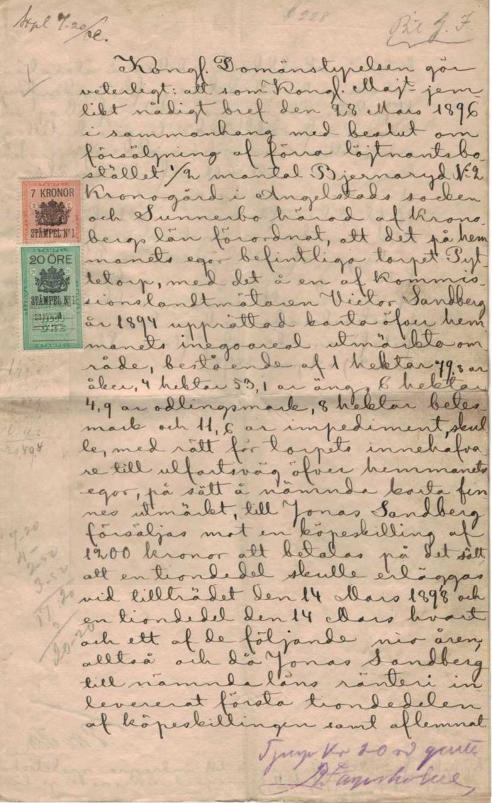 7-20
Kongl. Domänstyrelsen gör
veterligt: att som Kongl. Maj:t jem
likt nådigt bref den 28 Mars 1896
i sammanhang med beslut om
försäljning af förra löjtnantsbo-
stället 1/2 mantal Bjernaryd N:2
Kronogård i Angelstads socken
och Sunnerbo härad af Krono
bergs län förordnat, att det på hem
manets egor befintliga torpet Pyt
tetorp, med det å en af Kommis
sionslandtmätaren Victor Sandberg
år 1894 upprättad karta öfver hem
manets inegoareal utmärkta om
råde, bestående af 1 hektar 79,8 ar
åker, 4 hektar 53,1 ar äng, 6 hektar
4,9 ar odlingsmark, 8 hektar betes
mark och 11,6 ar impediment, skul
le, med rätt för torpets innehafva
re till utfartsväg öfver hemmanets
egor, på sätt å nämnda karta fin
nes utmärkt, till Jonas Sandberg
försäljas mot en köpeskilling af
1200 kronor att betalas på det sätt
att en tiondedel skulle erläggas
vid tillträdet den 14 Mars 1898 och
en tiondedel den 14 Mars hvart
och ett af de följande nio åren,
alltså och då Jonas Sandberg
till nämnda läns ränteri in
levererat första tiondedelen
af köpeskillingen samt aflemnat
7 KRONOR
STÄMPEL No 1
20 ÖRE
STÄMPEL No 1
7-20
17.20
20-20
Kr 20